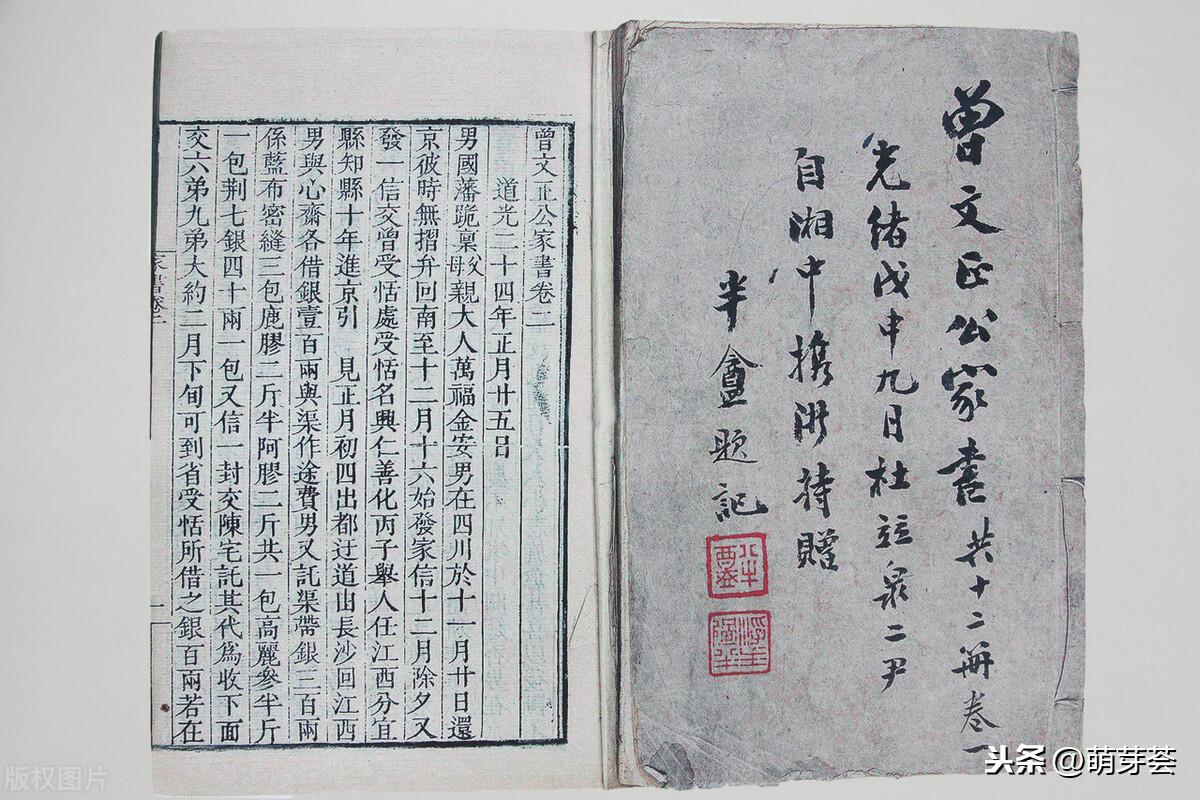 曾文正公家書共十二冊卷一
光緒戊申九日杜竝泉二尹
自湘中攜洪特贈
半盦題記
曾文正公家書卷二
道光二十四年正月廿五日
男國藩跪稟父母親大人萬福金安男在四川於十一月廿日還
京彼時無摺弁回南至十二月十六始發家信十二月除夕又
發一信交曾受恬處受恬名興仁善化丙子舉人任江西分宜
縣知縣十年進京引　見正月初四出都迂道由長沙回江西
男與心齋各借銀壹百兩與渠作途費男又託渠帶銀三百兩
係藍布密縫三包鹿膠二斤半阿膠二斤共一包高麗參半斤
一包荆七銀四十兩一包又信一封交陳宅託其代為收下面
交六弟九弟大約二月下旬可到省受恬所借之銀百兩若在
家書卷二
一
版权图片
头条@萌芽荟